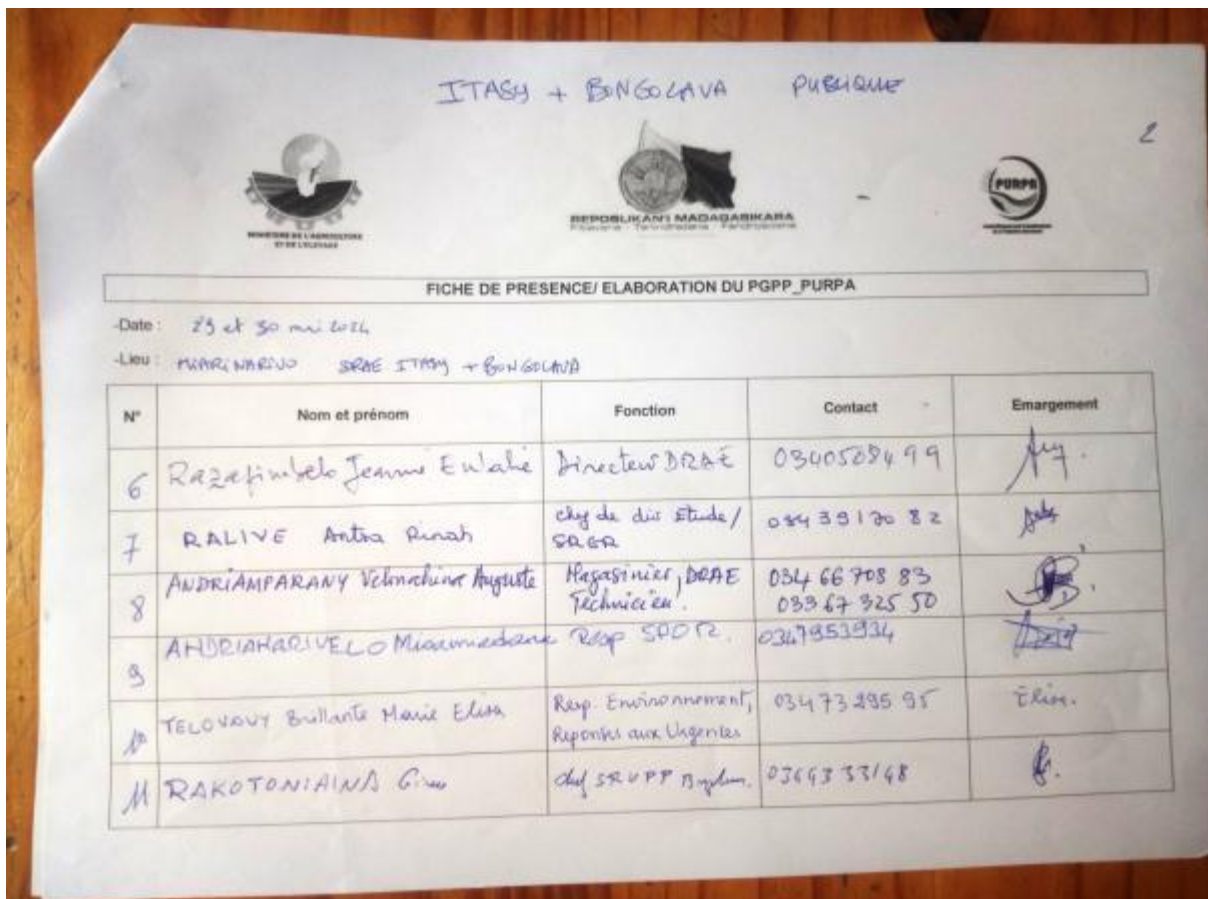 ITASY + BONGOLAVA PUBLIQUE
2
MINISTERE DE L'AGRICULTURE
ET DE L'ELEVAGE
REPOBLIKAN'I MADAGASIKARA
Fitiavana - Tanindrazana - Fandrosoana
PURPA
FICHE DE PRESENCE/ ELABORATION DU PGPP_PURPA
-Date : 29 et 30 mai 2024
-Lieu : MIARINARIVO DRAE ITASY + BONGOLAVA
N° Nom et prénom Fonction Contact Emargement
6 Razafimbelo Jeanne Eulalie Directeur DRAE 0340508499
7 RALIVE Antra Rinah chef de div Etude/ 034 39 170 82
SRGR
8 ANDRIAMPARANY Auguste Magasinier, DRAE 034 66 708 83
Technicien. 033 67 325 50
9 ANDRIAHARIVELO Resp 0347953934
10 TELOVAVY Brillante Marie Elisa Resp. Environnement, 034 73 295 95 Elisa.
Reponses aux Urgences
11 RAKOTONIAINA chef SRVPP